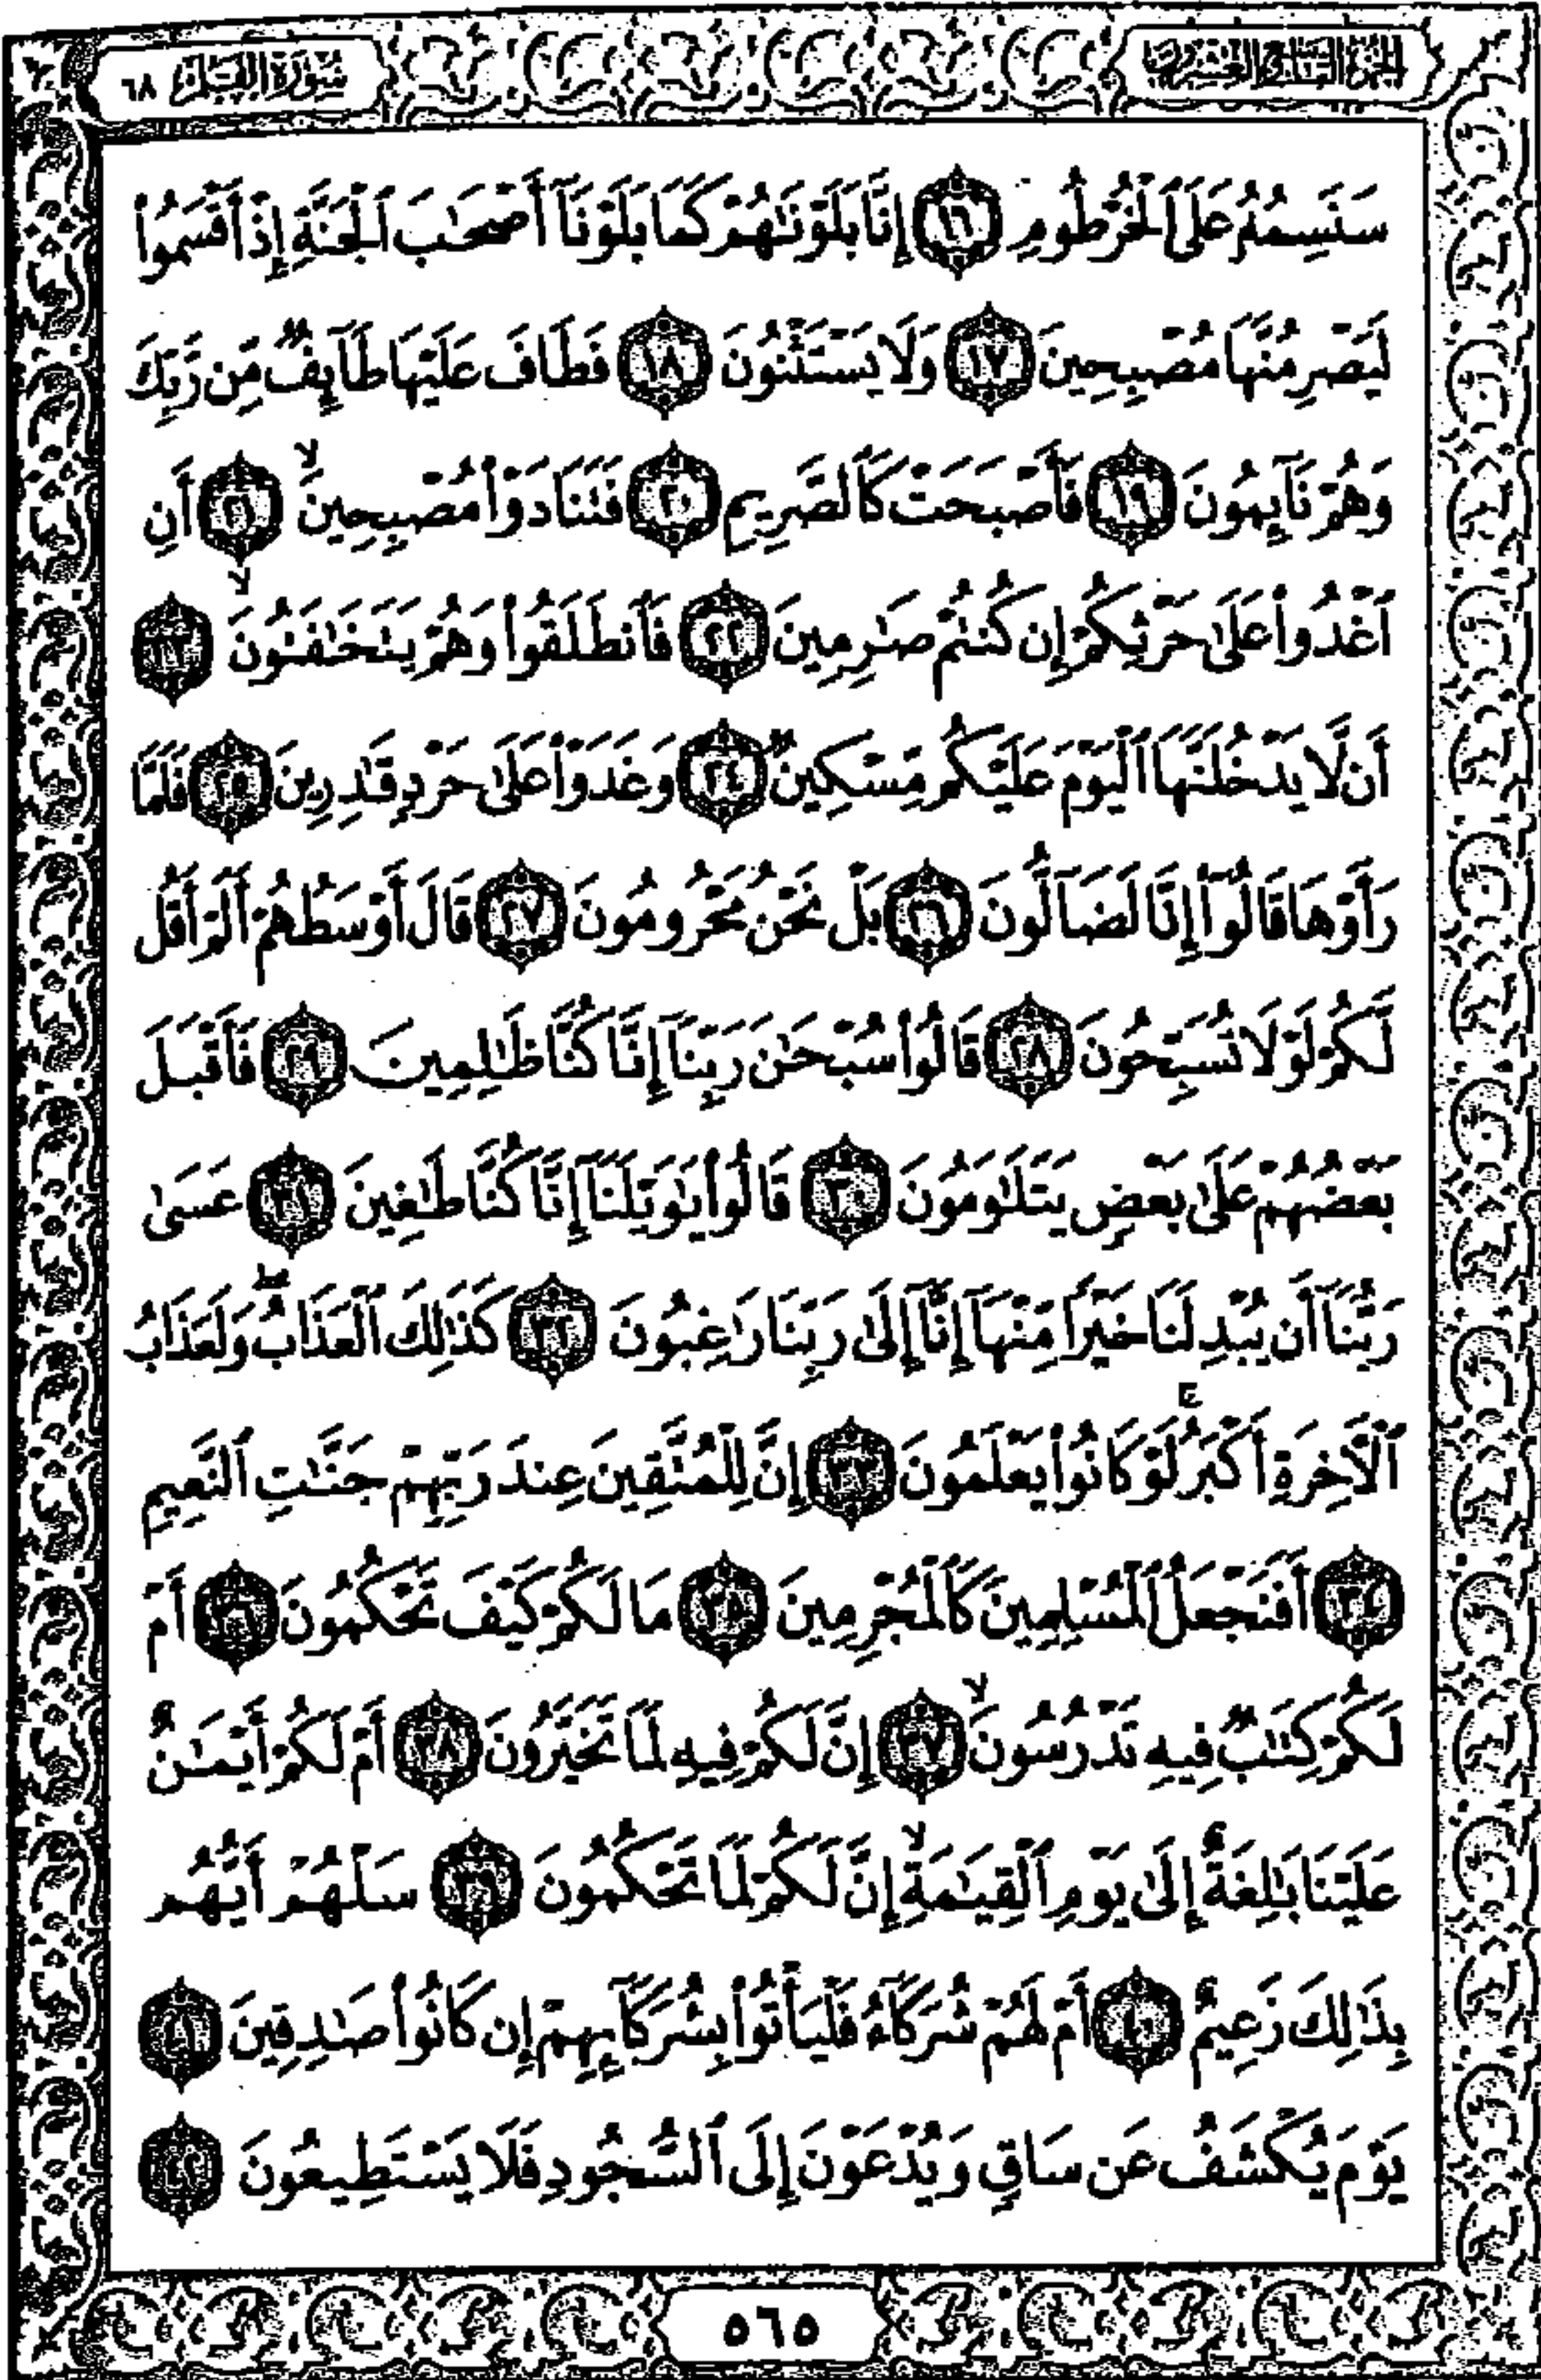 سُورَةُ القَلَمِ ٦٨
الجُزْءُ التَّاسِعُ وَالعِشْرُونَ
سَنَسِمُهُۥ عَلَى ٱلْخُرْطُومِ ١٦ إِنَّا بَلَوْنَٰهُمْ كَمَا بَلَوْنَآ أَصْحَٰبَ ٱلْجَنَّةِ إِذْ أَقْسَمُوا۟
لَيَصْرِمُنَّهَا مُصْبِحِينَ ١٧ وَلَا يَسْتَثْنُونَ ١٨ فَطَافَ عَلَيْهَا طَآئِفٌ مِّن رَّبِّكَ
وَهُمْ نَآئِمُونَ ١٩ فَأَصْبَحَتْ كَٱلصَّرِيمِ ٢٠ فَتَنَادَوْا۟ مُصْبِحِينَ ۙ ٢١ أَنِ
ٱغْدُوا۟ عَلَىٰ حَرْثِكُمْ إِن كُنتُمْ صَٰرِمِينَ ٢٢ فَٱنطَلَقُوا۟ وَهُمْ يَتَخَٰفَتُونَ ۙ ٢٣
أَن لَّا يَدْخُلَنَّهَا ٱلْيَوْمَ عَلَيْكُم مِّسْكِينٌ ٢٤ وَغَدَوْا۟ عَلَىٰ حَرْدٍ قَٰدِرِينَ ٢٥ فَلَمَّا
رَأَوْهَا قَالُوٓا۟ إِنَّا لَضَآلُّونَ ٢٦ بَلْ نَحْنُ مَحْرُومُونَ ٢٧ قَالَ أَوْسَطُهُمْ أَلَمْ أَقُل
لَّكُمْ لَوْلَا تُسَبِّحُونَ ٢٨ قَالُوا۟ سُبْحَٰنَ رَبِّنَآ إِنَّا كُنَّا ظَٰلِمِينَ ٢٩ فَأَقْبَلَ
بَعْضُهُمْ عَلَىٰ بَعْضٍ يَتَلَٰوَمُونَ ٣٠ قَالُوا۟ يَٰوَيْلَنَآ إِنَّا كُنَّا طَٰغِينَ ٣١ عَسَىٰ
رَبُّنَآ أَن يُبْدِلَنَا خَيْرًا مِّنْهَآ إِنَّآ إِلَىٰ رَبِّنَا رَٰغِبُونَ ٣٢ كَذَٰلِكَ ٱلْعَذَابُ ۖ وَلَعَذَابُ
ٱلْءَاخِرَةِ أَكْبَرُ ۚ لَوْ كَانُوا۟ يَعْلَمُونَ ٣٣ إِنَّ لِلْمُتَّقِينَ عِندَ رَبِّهِمْ جَنَّٰتِ ٱلنَّعِيمِ
٣٤ أَفَنَجْعَلُ ٱلْمُسْلِمِينَ كَٱلْمُجْرِمِينَ ٣٥ مَا لَكُمْ كَيْفَ تَحْكُمُونَ ٣٦ أَمْ
لَكُمْ كِتَٰبٌ فِيهِ تَدْرُسُونَ ۙ ٣٧ إِنَّ لَكُمْ فِيهِ لَمَا تَخَيَّرُونَ ٣٨ أَمْ لَكُمْ أَيْمَٰنٌ
عَلَيْنَا بَٰلِغَةٌ إِلَىٰ يَوْمِ ٱلْقِيَٰمَةِ ۙ إِنَّ لَكُمْ لَمَا تَحْكُمُونَ ٣٩ سَلْهُمْ أَيُّهُم
بِذَٰلِكَ زَعِيمٌ ٤٠ أَمْ لَهُمْ شُرَكَآءُ فَلْيَأْتُوا۟ بِشُرَكَآئِهِمْ إِن كَانُوا۟ صَٰدِقِينَ ٤١
يَوْمَ يُكْشَفُ عَن سَاقٍ وَيُدْعَوْنَ إِلَى ٱلسُّجُودِ فَلَا يَسْتَطِيعُونَ ٤٢
٥٦٥